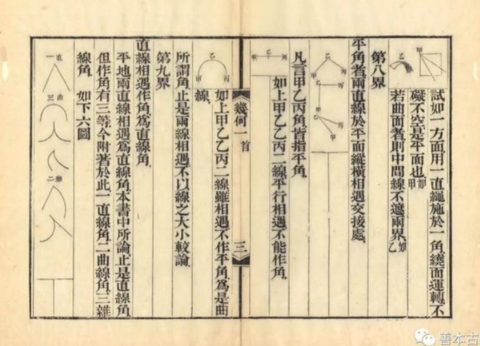 試如一方面用一直繩施於一角繞面運轉不
礙不空是平面也
若曲面者則中間線不遮兩界
第八界
平角者兩直線於平面縱橫相遇交接處
凡言甲乙丙角皆指平角
如上甲乙乙丙二線平行相遇不能作角
幾何一首
三
如上甲乙乙丙二線雖相遇不作平角為是曲
線
所謂角止是兩線相遇不以線之大小較論
第九界
直線相遇作角為直線角
平地兩直線相遇為直線角本書中所論止是直線角
但作角有三等今附著於此一直線角二曲線角三雜
線角 如下六圖
善本古